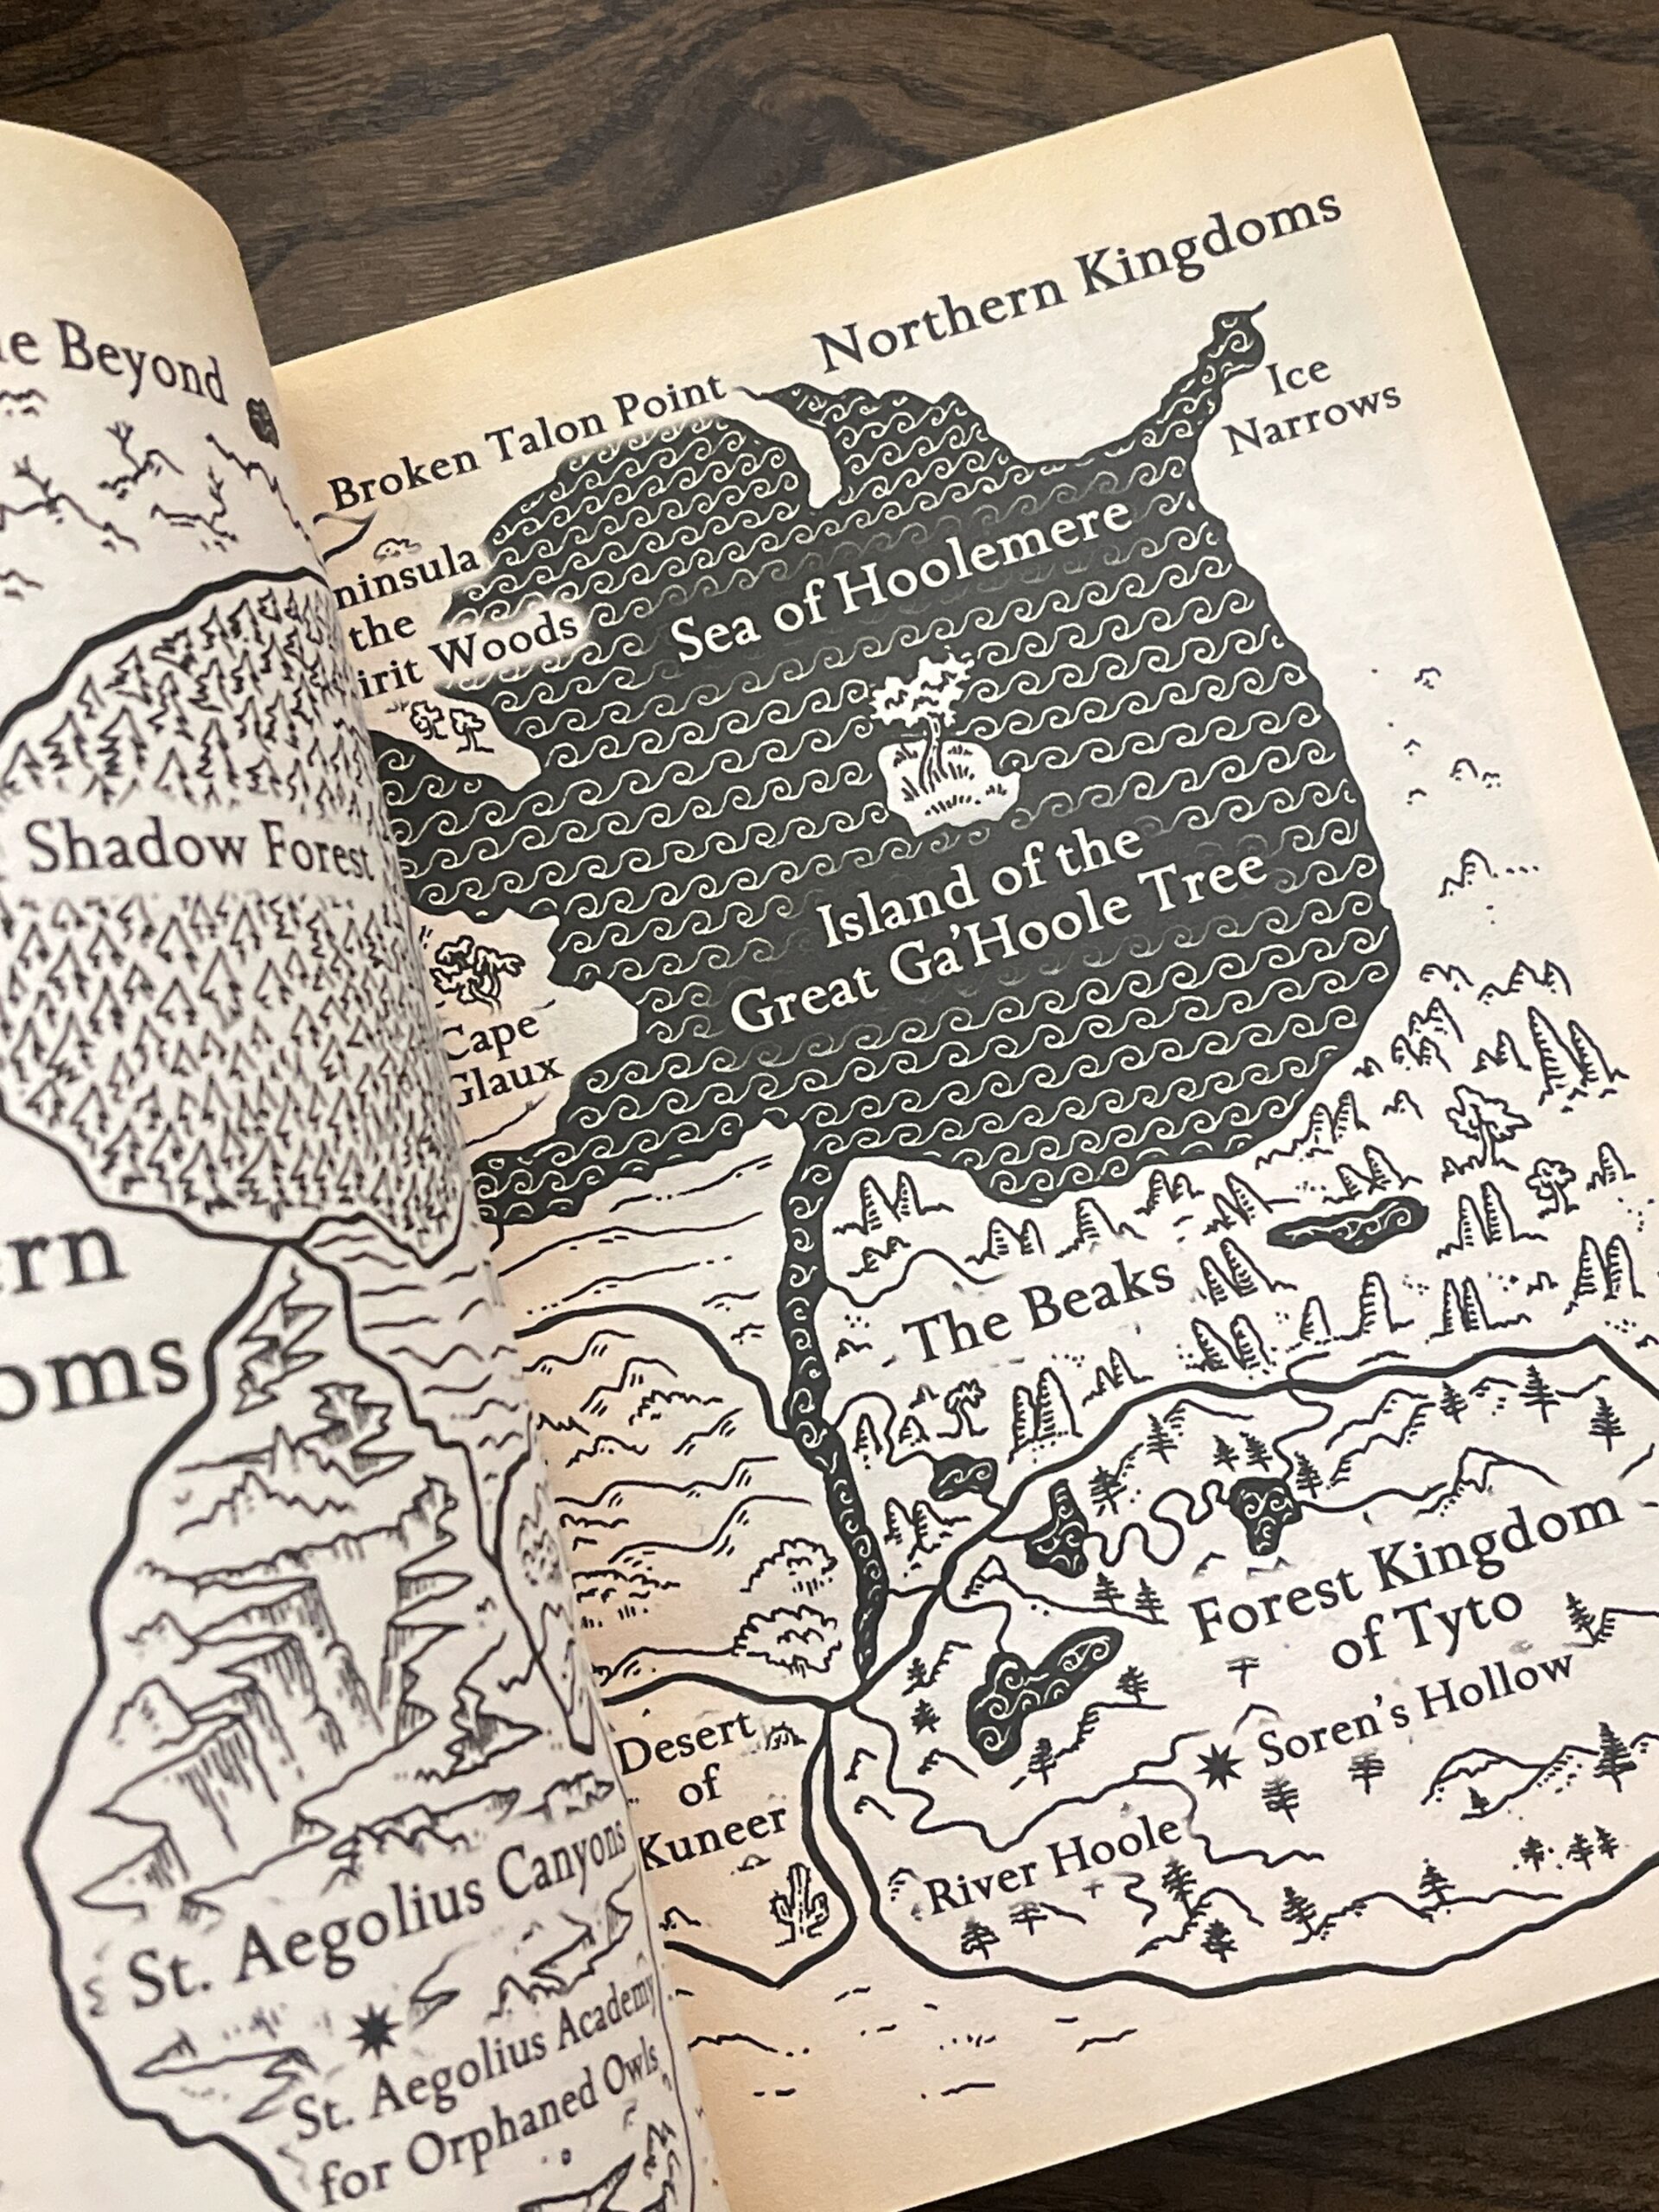 Beyond
Shadow Forest
St. Aegolius Canyons
St. Aegolius Academy
for Orphaned Owls
Northern Kingdoms
Ice
Narrows
Broken Talon Point
the
Woods
Sea of Hoolemere
Island of the
Great Ga'Hoole Tree
Cape
Glaux
The Beaks
Forest Kingdom
of Tyto
Soren's Hollow
River Hoole
Desert
of
Kuneer